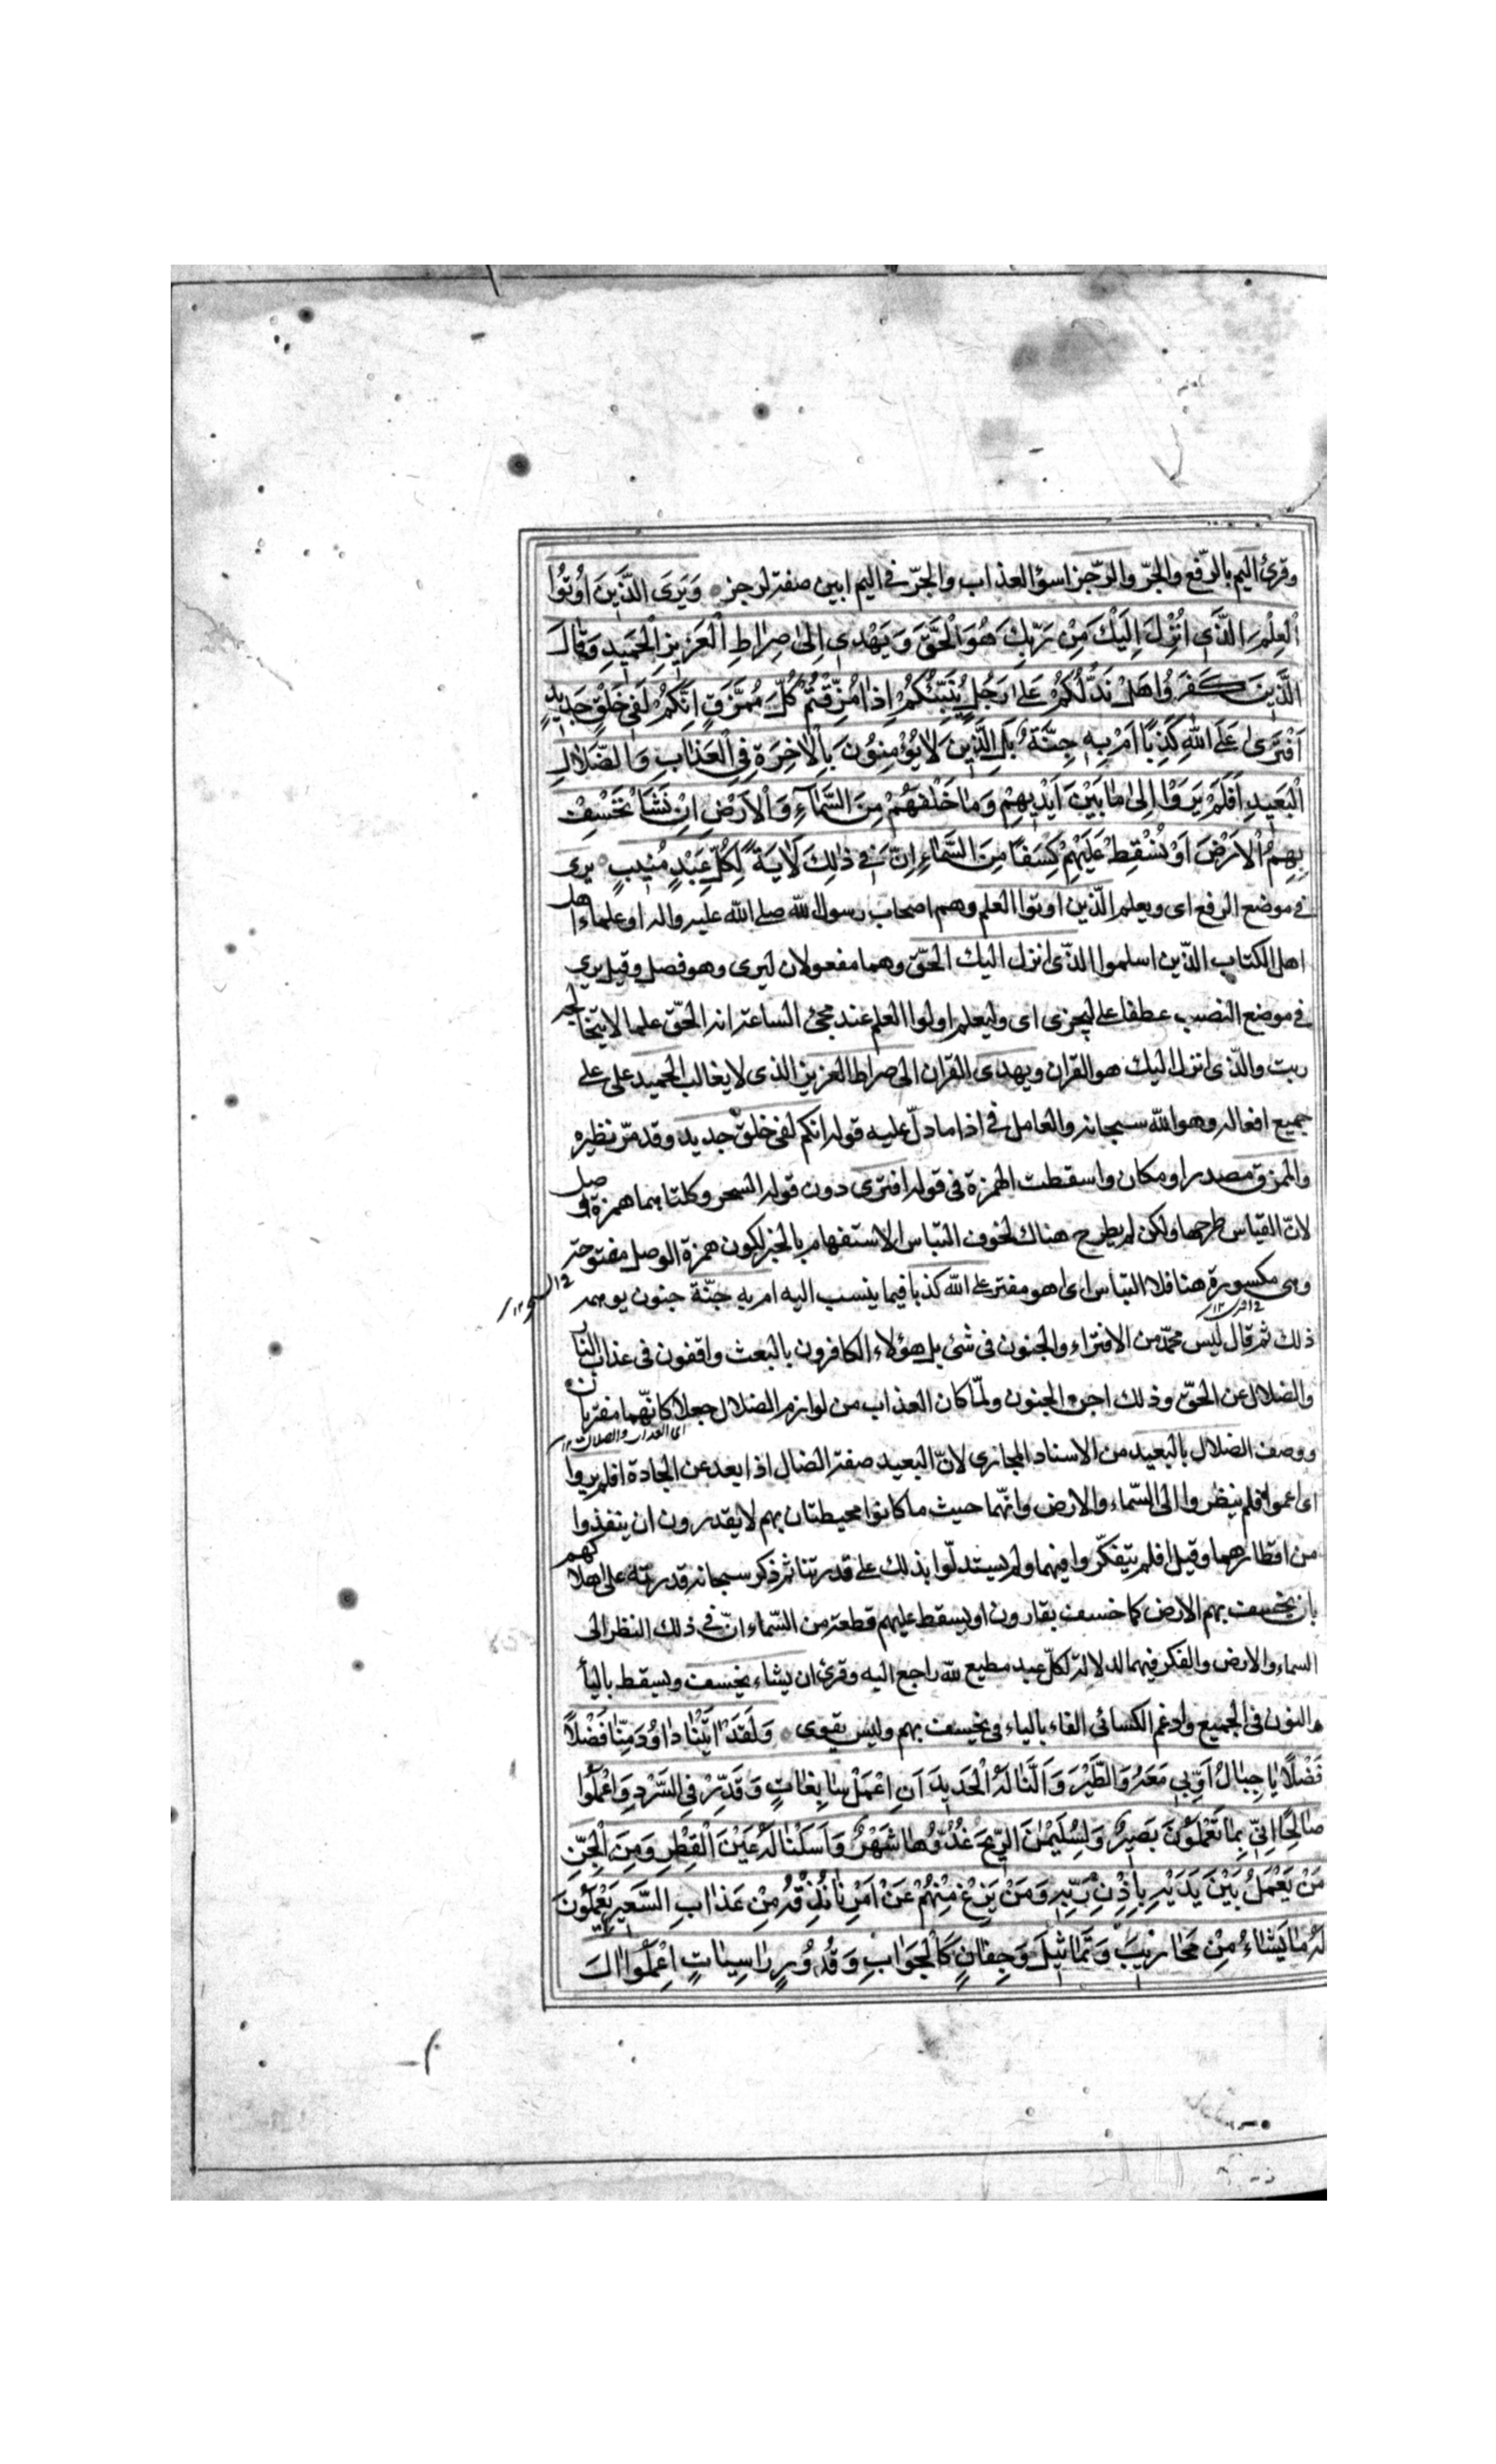 وقرئ اليم بالرّفع والجرّ والرّجز اسوؤ العذاب والجرّ في اليم ابين صفته لرجز وَيَرَى الَّذينَ اُوتُوا
الْعِلْمَ الَّذي اُنْزِلَ اِلَيْكَ مِنْ رَبِّكَ هُوَ الْحَقَّ وَيَهْدي اِلىٰ صِرٰاطِ الْعَزيزِ الْحَميدِ وَقٰالَ
الَّذينَ كَفَرُوا هَلْ نَدُلُّكُمْ عَلىٰ رَجُلٍ يُنَبِّئُكُمْ اِذٰا مُزِّقْتُمْ كُلَّ مُمَزَّقٍ اِنَّكُمْ لَفي خَلْقٍ جَديدٍ
اَفْتَرىٰ عَلَى اللهِ كَذِبًا اَمْ بِه جِنَّةٌ بَلِ الَّذينَ لاٰ يُؤْمِنُونَ بِالْاٰخِرَةِ فِي الْعَذٰابِ وَالضَّلاٰلِ
الْبَعيدِ اَفَلَمْ يَرَوْا اِلىٰ مٰا بَيْنَ اَيْديهِمْ وَمٰا خَلْفَهُمْ مِنَ السَّمٰآءِ وَالْاَرْضِ اِنْ نَشَأْ نَخْسِفْ
بِهِمُ الْاَرْضَ اَوْ نُسْقِطْ عَلَيْهِمْ كِسَفًا مِنَ السَّمٰاءِ اِنَّ في ذٰلِكَ لَاٰيَةً لِكُلِّ عَبْدٍ مُنيبٍ يرى
في موضع الرفع اى ويعلم الّذين اوتوا العلم وهم اصحاب رسول الله صلى الله عليه واله او علماء اهل
اهل الكتاب الّذين اسلموا الّذى انزل اليك الحقّ وهما مفعولان ليرى وهو فصل وقيل يرى
في موضع النصب عطفا على ليجزى اى وليعلم اولوا العلم عند مجئ الساعة انه الحقّ علما لا يتخالجه
ريب والّذى انزل اليك هو القران ويهدى القران الى صراط العزيز الذى لا يغالب الحميد على على
جميع افعاله وهو الله سبحانه والعامل في اذا ما دلّ عليه قوله انكم لفى خلق جديد وقد مرّ نظيره
والممزق مصدر او مكان واسقطت الهمزة فى قوله افترى دون قوله السحر وكلتاهما همزة وصل
لانّ القياس طرحها ولكن لم يطرح هناك لخوف التباس الاستفهام بالخبر لكون همزة الوصل مفتوحة
وهى مكسورة هنا فلا التباس اى اهو مفتر على الله كذبا فيما ينسب اليه ام به جنّة جنون يوهمه
ذلك ثم قال ليس محمّد من الافتراء والجنون فى شئ بل هؤلاء الكافرون بالبعث واقفون فى عذاب النار
والضلال عن الحقّ وذلك اجنّ الجنون ولمّا كان العذاب من لوازم الضلال جعلا كانّهما مقترنان
اى العذاب والضلال ١٢
ووصف الضلال بالبعيد من الاسناد المجازى لانّ البعيد صفة الضال اذا بعد عن الجادة افلم يروا
اى اعموا فلم ينظروا الى السّماء والارض وانّهما حيث ما كانوا محيطتان بهم لا يقدرون ان ينفذوا
من اقطارهما وقيل افلم يتفكّروا فيهما ولم يستدلّوا بذلك على قدرتنا ثم ذكر سبحانه قدرته على اهلاكهم
بان يخسف بهم الارض كما خسف بقارون او يسقط عليهم قطعة من السّماء انّ في ذلك النظر الى
السماء والارض والفكر فيهما لدلالة لكلّ عبد مطيع لله راجع اليه وقرئ ان يشاء يخسف ويسقط باليأ
والنون فى الجميع وادغم الكسائى الفاء بالباء فى يخسف بهم وليس بقوى وَلَقَدْ اٰتَيْنٰا دٰاوُدَ مِنّٰا فَضْلًا
فَضْلًا يٰا جِبٰالُ اَوِّبي مَعَهُ وَالطَّيْرَ وَاَلَنّٰا لَهُ الْحَديدَ اَنِ اعْمَلْ سٰابِغٰاتٍ وَقَدِّرْ فِي السَّرْدِ وَاعْمَلُوا
صٰالِحًا اِنّي بِمٰا تَعْمَلُونَ بَصيرٌ وَلِسُلَيْمٰنَ الرّيحَ غُدُوُّهٰا شَهْرٌ وَاَسَلْنٰا لَهُ عَيْنَ الْقِطْرِ وَمِنَ الْجِنِّ
مَنْ يَعْمَلُ بَيْنَ يَدَيْهِ بِاِذْنِ رَبِّه وَمَنْ يَزِغْ مِنْهُمْ عَنْ اَمْرِنٰا نُذِقْهُ مِنْ عَذٰابِ السَّعيرِ يَعْمَلُونَ
لَهُ مٰا يَشٰاءُ مِنْ مَحٰاريبَ وَتَمٰاثيلَ وَجِفٰانٍ كَالْجَوٰابِ وَقُدُورٍ رٰاسِيٰاتٍ اِعْمَلُوا اٰلَ